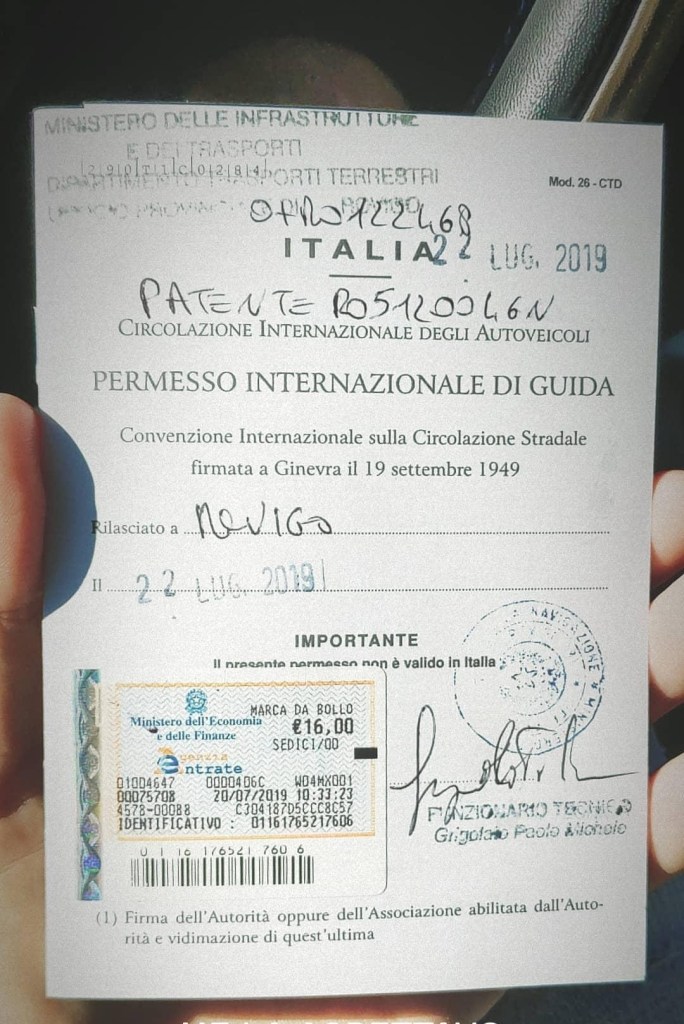 MINISTERO DELLE INFRASTRUTTURE
E DEI TRASPORTI
DIPARTIMENTO TRASPORTI TERRESTRI
Mod. 26 - CTD
ITALIA
22 LUG. 2019
PATENTE RO5120046N
CIRCOLAZIONE INTERNAZIONALE DEGLI AUTOVEICOLI
PERMESSO INTERNAZIONALE DI GUIDA
Convenzione Internazionale sulla Circolazione Stradale
firmata a Ginevra il 19 settembre 1949
Rilasciato a ROVIGO
Il 22 LUG. 2019
IMPORTANTE
Il presente permesso non è valido in Italia
NAVIGAZIONE
Ministero dell'Economia
e delle Finanze
MARCA DA BOLLO
€16,00
SEDICI/00
Agenzia
Entrate
01004647 0000406C W04MX001
00075708 20/07/2019 10:33:23
4578-00088 C304187D5CCC8C57
IDENTIFICATIVO : 01161765217606
0 1 16 176521 760 6
FUNZIONARIO TECNICO
Grigolato Paolo Michele
(1) Firma dell'Autorità oppure dell'Associazione abilitata dall'Auto-
rità e vidimazione di quest'ultima